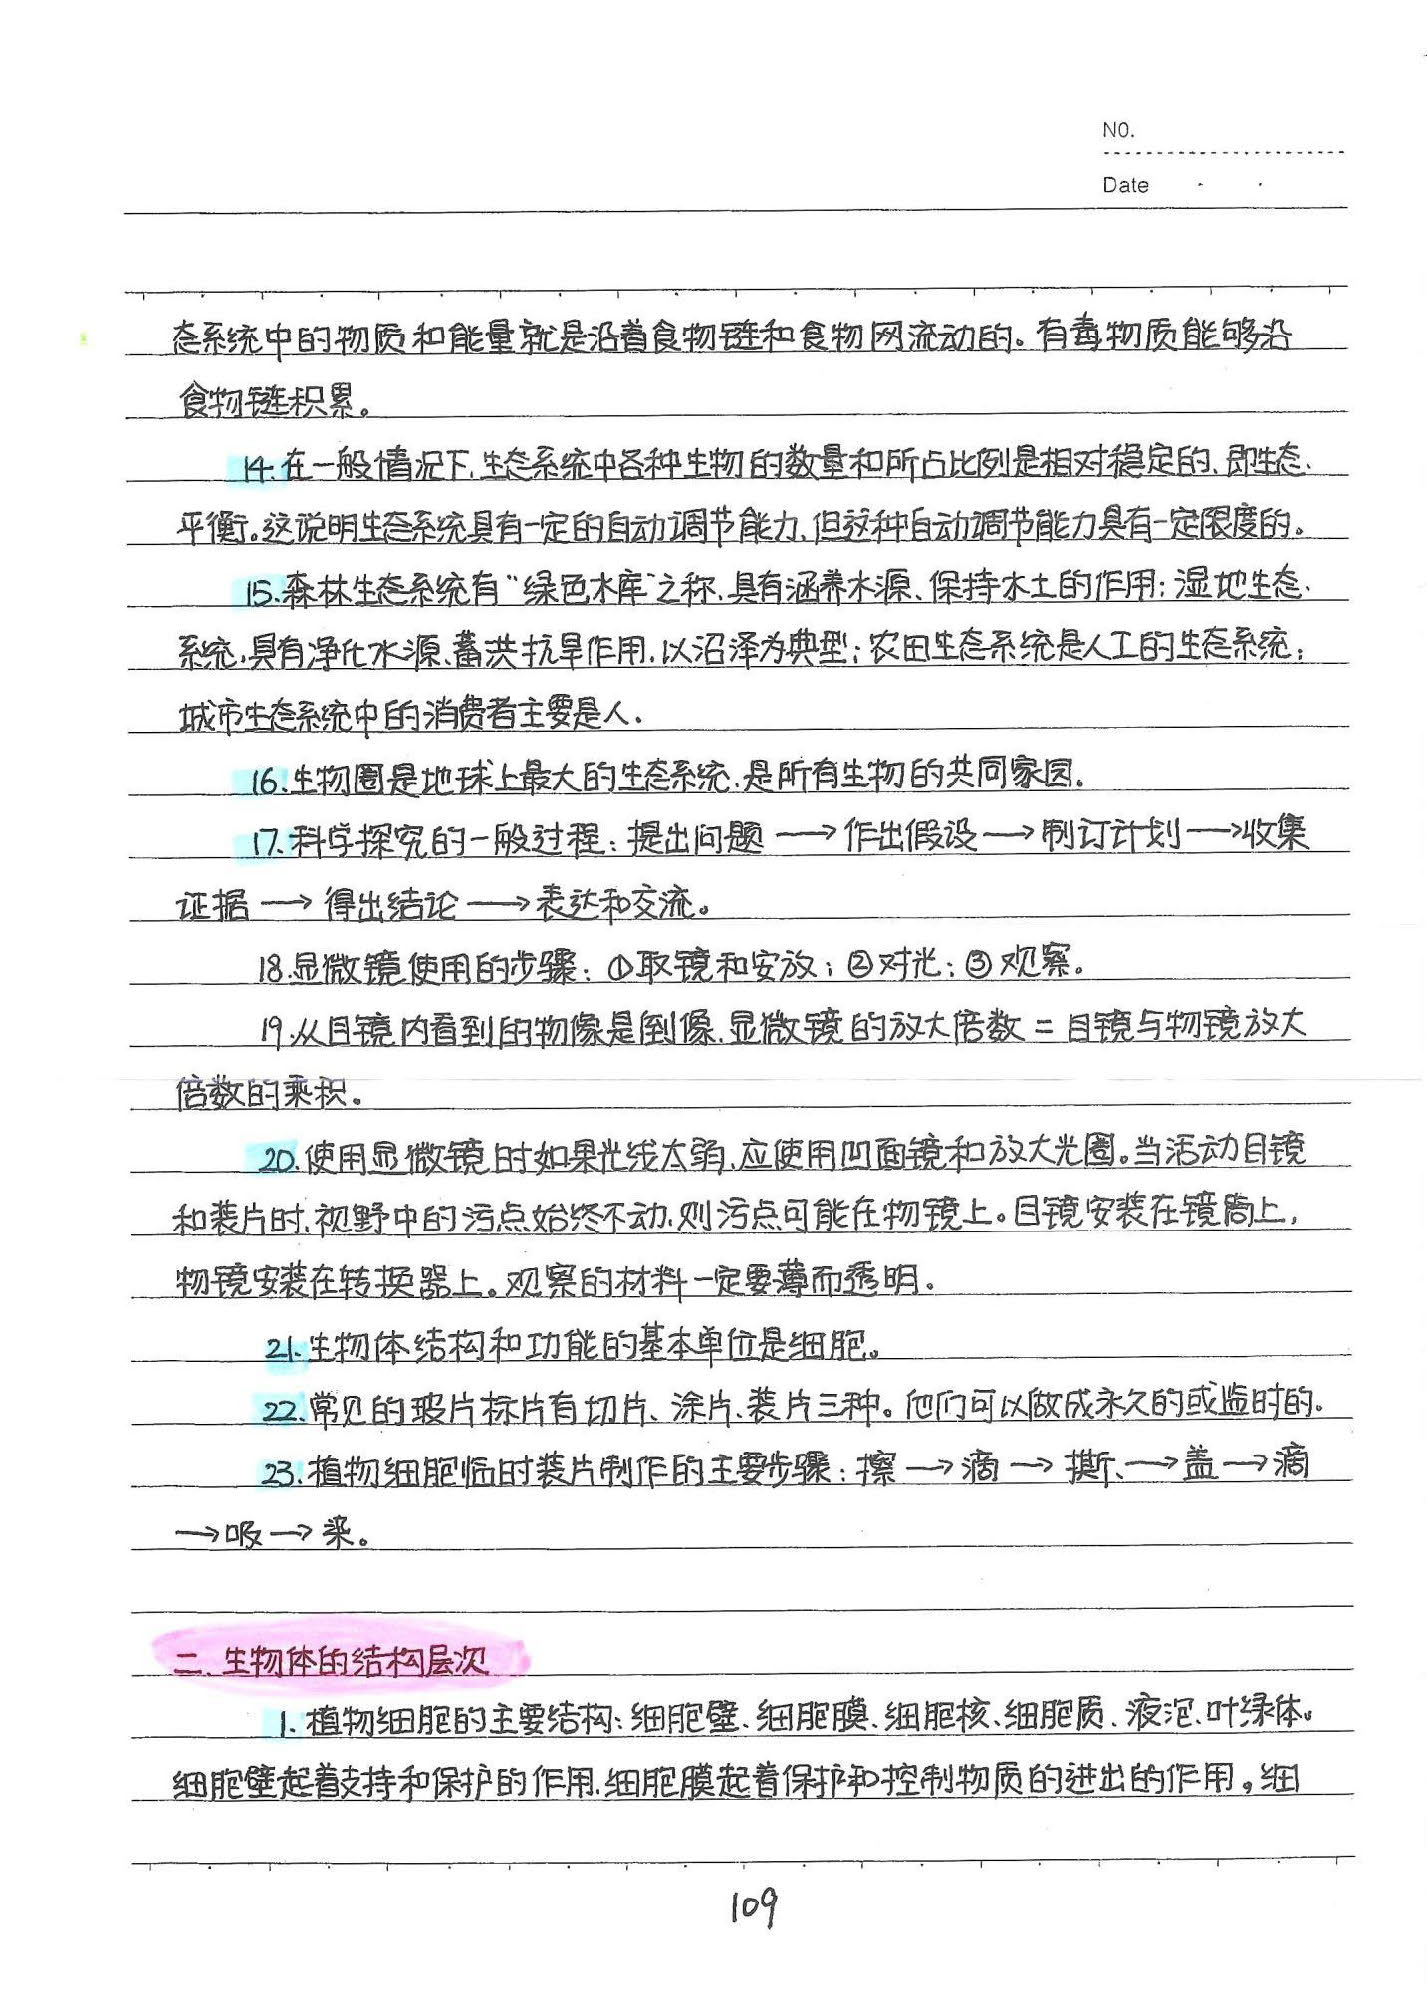 NO.
Date
态系统中的物质和能量就是沿着食物链和食物网流动的。有毒物质能够沿
食物链积累。
14.在一般情况下,生态系统中各种生物的数量和所占比例是相对稳定的,即生态
平衡。这说明生态系统具有一定的自动调节能力,但这种自动调节能力具有一定限度的。
15.森林生态系统有“绿色水库”之称,具有涵养水源、保持水土的作用;湿地生态
系统,具有净化水源、蓄洪抗旱作用,以沼泽为典型;农田生态系统是人工的生态系统;
城市生态系统中的消费者主要是人.
16.生物圈是地球上最大的生态系统,是所有生物的共同家园.
17.科学探究的一般过程:提出问题→作出假设→制订计划→收集
证据→得出结论→表达和交流。
18.显微镜使用的步骤:①取镜和安放;②对光;③观察.
19.从目镜内看到的物像是倒像,显微镜的放大倍数=目镜与物镜放大
倍数的乘积。
20.使用显微镜时如果光线太弱,应使用凹面镜和放大光圈。当活动目镜
和装片时,视野中的污点始终不动,则污点可能在物镜上。目镜安装在镜筒上,
物镜安装在转换器上。观察的材料一定要薄而透明.
21.生物体结构和功能的基本单位是细胞。
22.常见的玻片标片有切片、涂片、装片三种。他们可以做成永久的或监时的.
23.植物细胞临时装片制作的主要步骤:擦→滴→撕、→盖→滴
→吸→染。
二.生物体的结构层次
1.植物细胞的主要结构:细胞壁、细胞膜、细胞核、细胞质、液泡、叶绿体。
细胞壁起着支持和保护的作用,细胞膜起着保护和控制物质的进出的作用。细
109